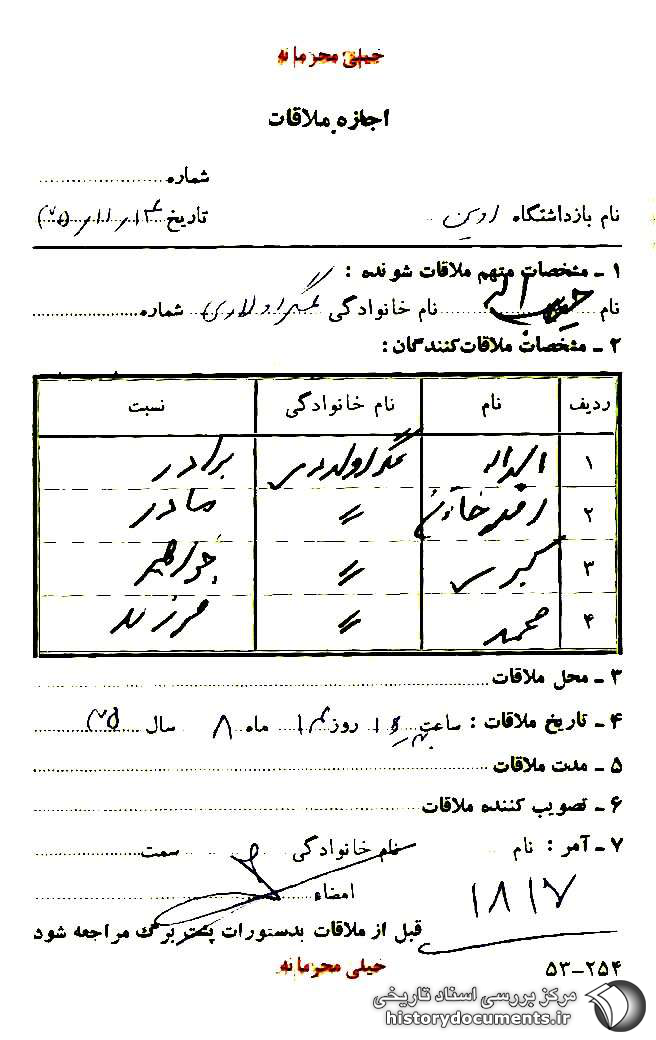 خیلی محرمانه
اجازه ملاقات
شماره
نام بازداشتگاه اوین
تاریخ
۱ ـ مشخصات متهم ملاقات شونده :
نام حبیب اله نام خانوادگی عسگراولادی شماره
۲ ـ مشخصات ملاقات‌کنندگان :
ردیف نام نام خانوادگی نسبت
۱ اسداله عسگراولادی برادر
۲ " مادر
۳ کبری " خواهر
۴ محمد " فرزند
۳ ـ محل ملاقات
۴ ـ تاریخ ملاقات : ساعت روز ماه ۸ سال ۲۵
۵ ـ مدت ملاقات
۶ ـ تصویب کننده ملاقات
۷ ـ آمر : نام نام خانوادگی سمت
امضاء
۱۸۱۷
قبل از ملاقات بدستورات پشت برگ مراجعه شود
خیلی محرمانه
۵۳-۲۵۴
مرکز بررسی اسناد تاریخی
historydocuments.ir